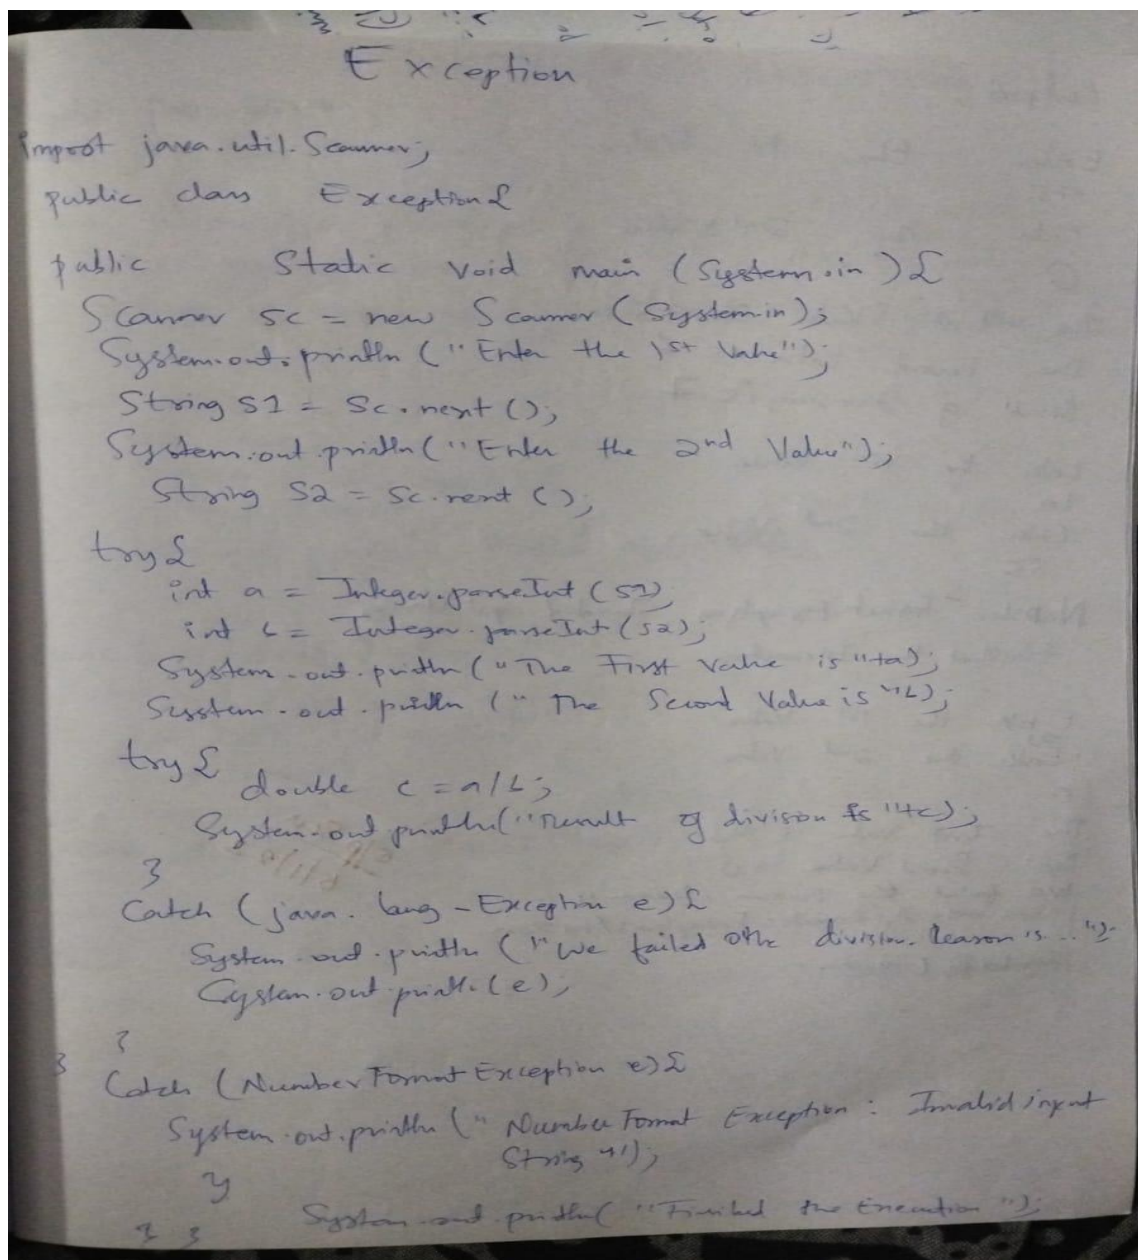 Exception
import java.util.Scanner;
public class Exception{
public static void main (System.in){
Scanner sc = new Scanner (System.in);
System.out.println ("Enter the 1st Value");
String S1 = Sc.next();
System.out.println("Enter the 2nd Value");
String S2 = Sc.next();
try{
int a = Integer.parseInt (S1)
int b = Integer.parseInt (S2);
System.out.println ("The First Value is "+a);
System.out.println ("The Second Value is "b);
try{
double c = a/b;
System.out println("Result of division is "+c);
}
Catch (java.lang-Exception e){
System.out.println ("We failed division. Reason is ...");
System.out.println(e);
}
}
Catch (NumberFormatException e){
System.out.println ("NumberFormat Exception: Invalid input
String "');
}
System.out.println("Finished the Execution ");
} }